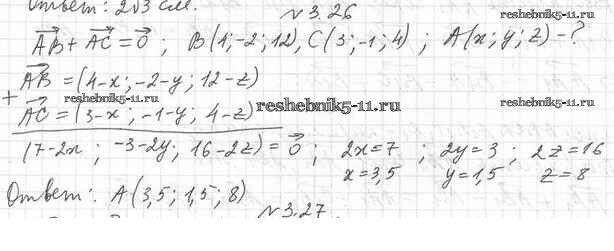 Ответ: 2√3 см.
№3.26
reshebnik5-11.ru
AB + AC = 0 ; B(4;-2;12), C(3;-1;4) ; A(x; y; z) - ?
AB = (4-x ; -2-y ; 12-z)
+
reshebnik5-11.ru
reshebnik5-11.ru
reshebnik5-11.ru
AC = (3-x ; -1-y ; 4-z)
(7-2x ; -3-2y ; 16-2z) = 0 ; 2x=7 ; 2y=3 ; 2z=16
x=3,5 y=1,5 z=8
Ответ: A(3,5; 1,5; 8)
№3.27